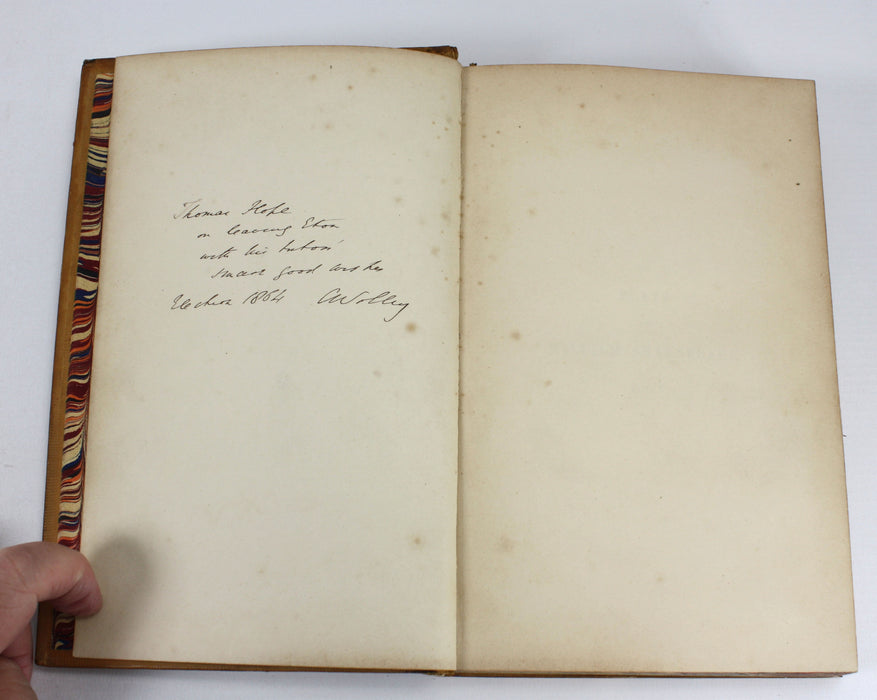 Thomas Hope
on leaving Eton
with his tutors'
sincere good wishes
Election 1864 C Wolley